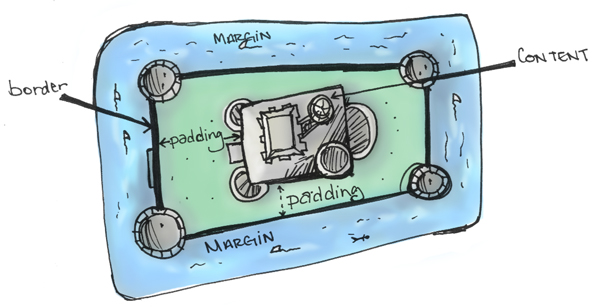 MARGIN
CONTENT
border
padding
padding
MARGIN